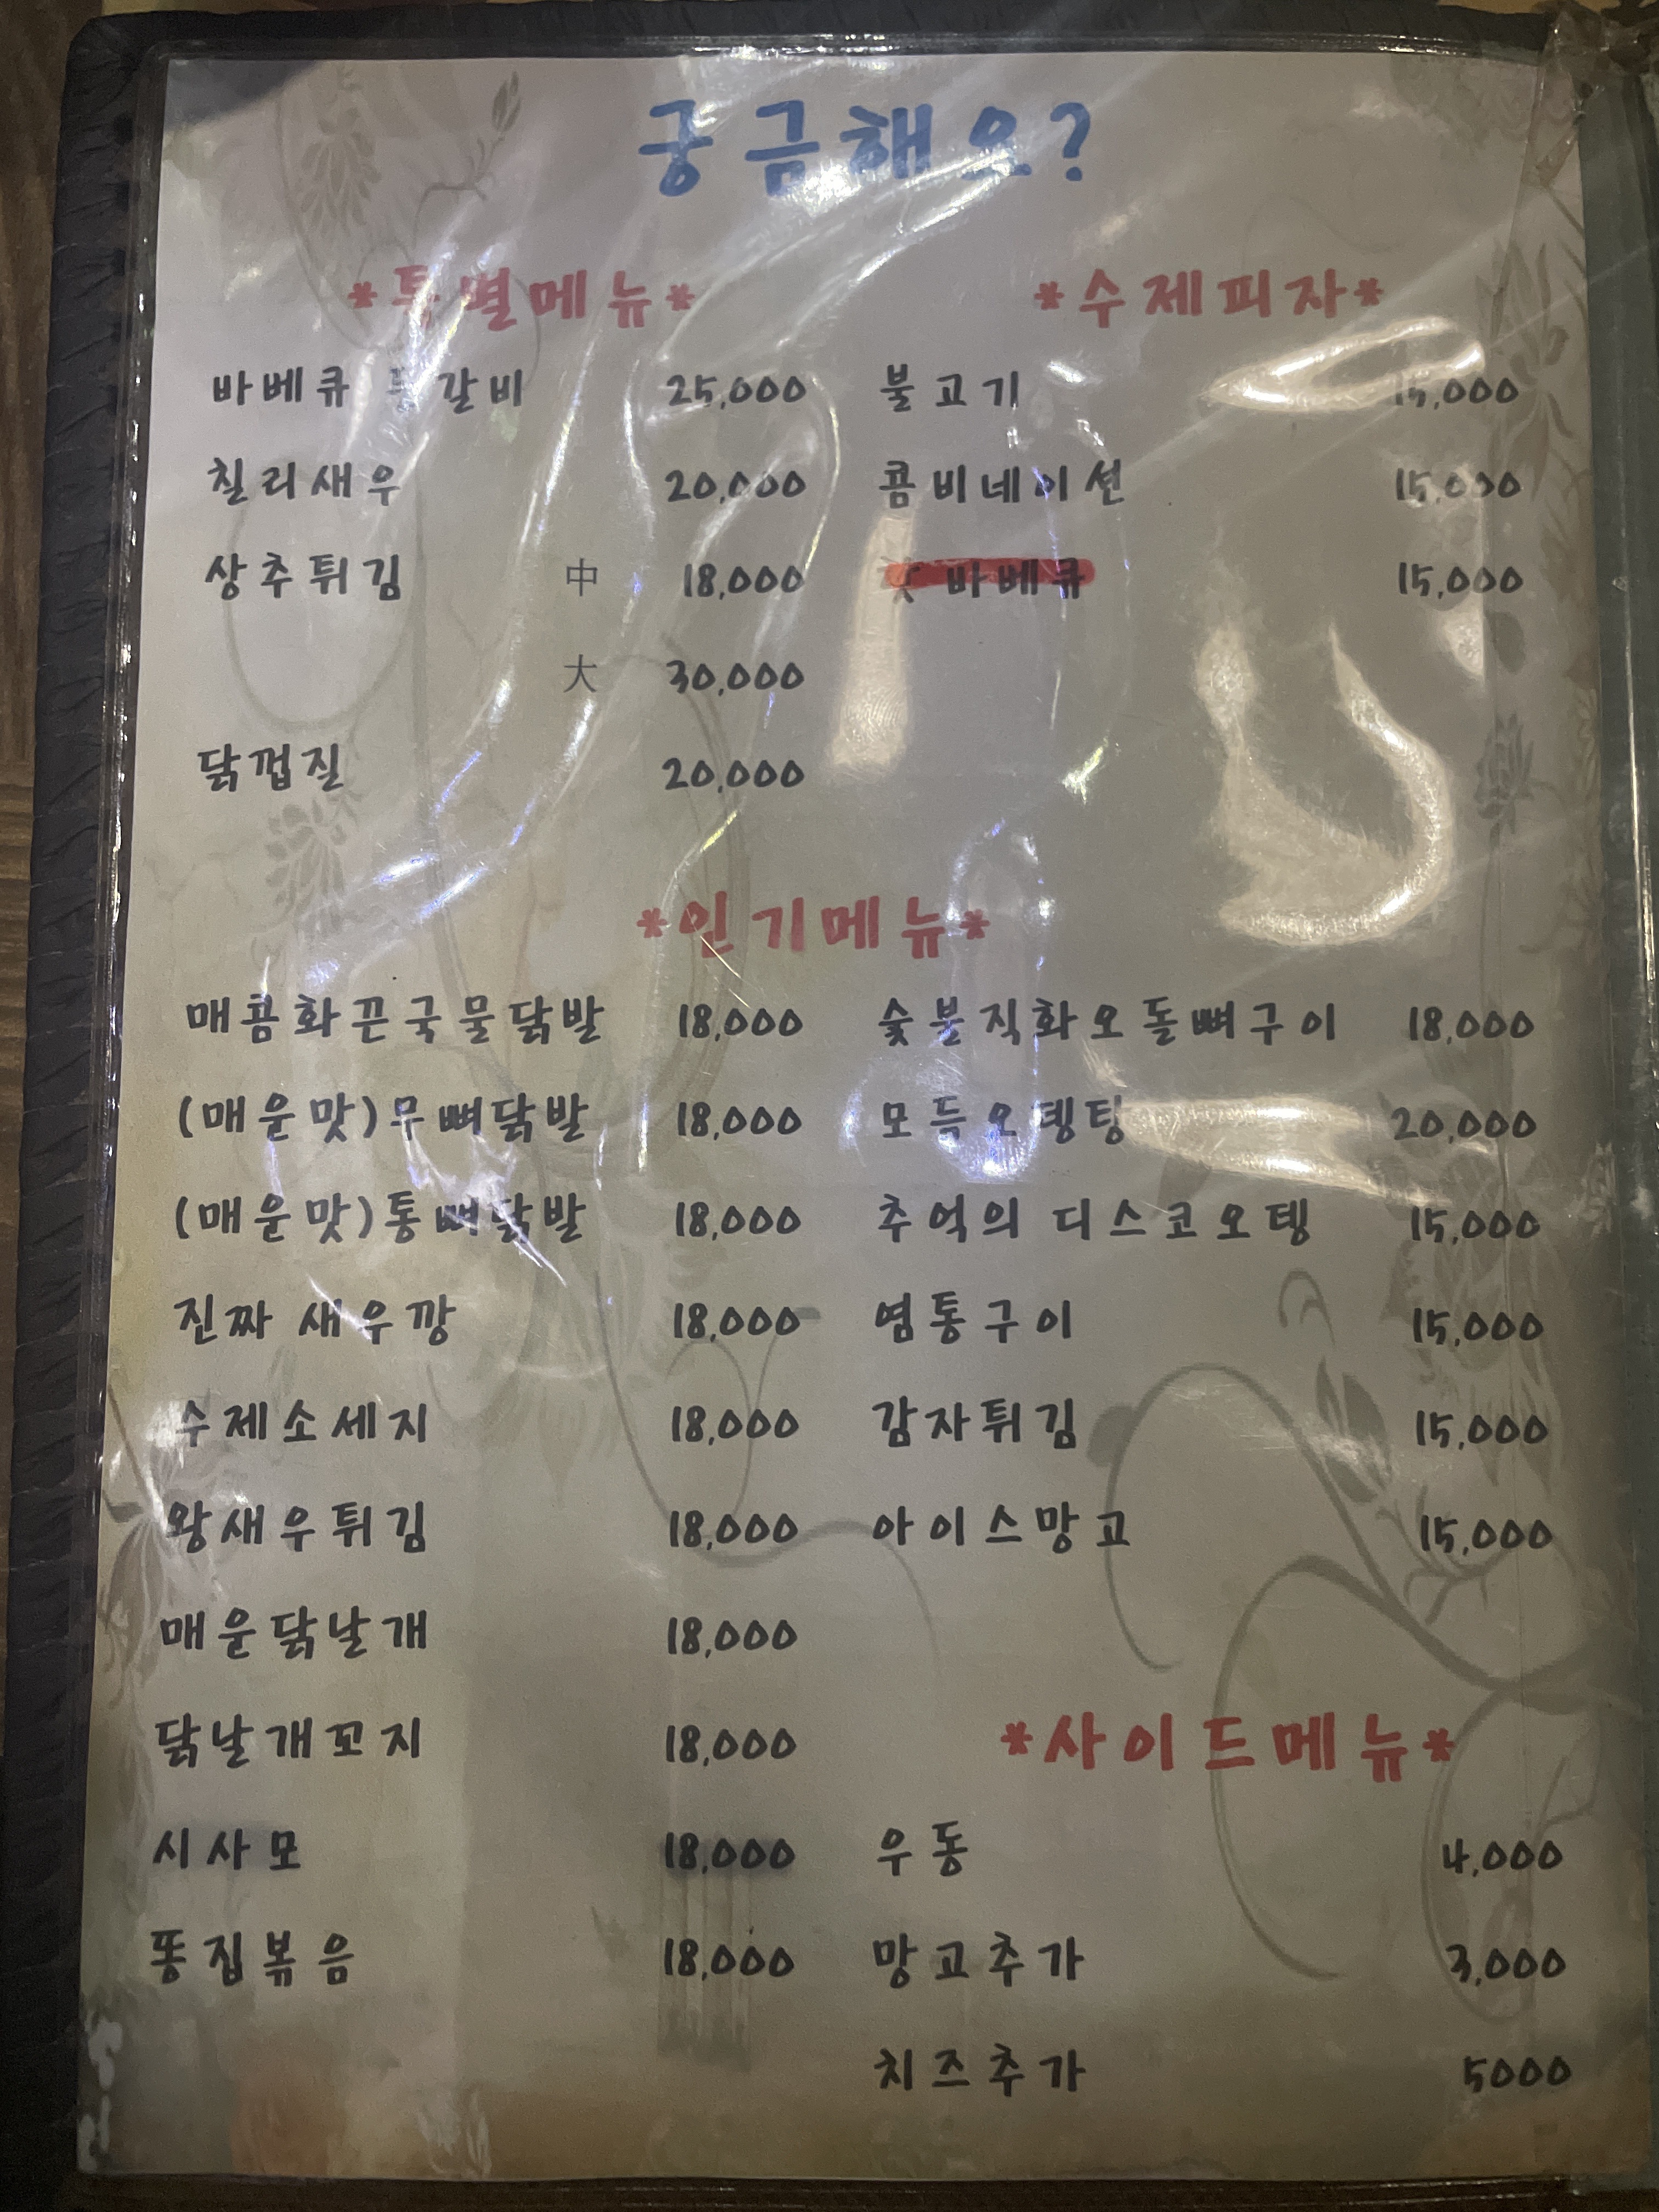 궁금해요?
*특별메뉴*
바베큐 등갈비 25,000
칠리새우 20,000
상추튀김 中 18,000
大 30,000
닭껍질 20,000
*수제피자*
불고기 15,000
콤비네이션 15,000
바베큐 15,000
*인기메뉴*
매콤화끈국물닭발 18,000
(매운맛)무뼈닭발 18,000
(매운맛)통뼈닭발 18,000
진짜 새우깡 18,000
수제소세지 18,000
왕새우튀김 18,000
매운닭날개 18,000
닭날개꼬지 18,000
시사모 18,000
똥집볶음 18,000
숯불직화오돌뼈구이 18,000
모듬오뎅탕 20,000
추억의 디스코오뎅 15,000
염통구이 15,000
감자튀김 15,000
아이스망고 15,000
*사이드메뉴*
우동 4,000
망고추가 3,000
치즈추가 5000